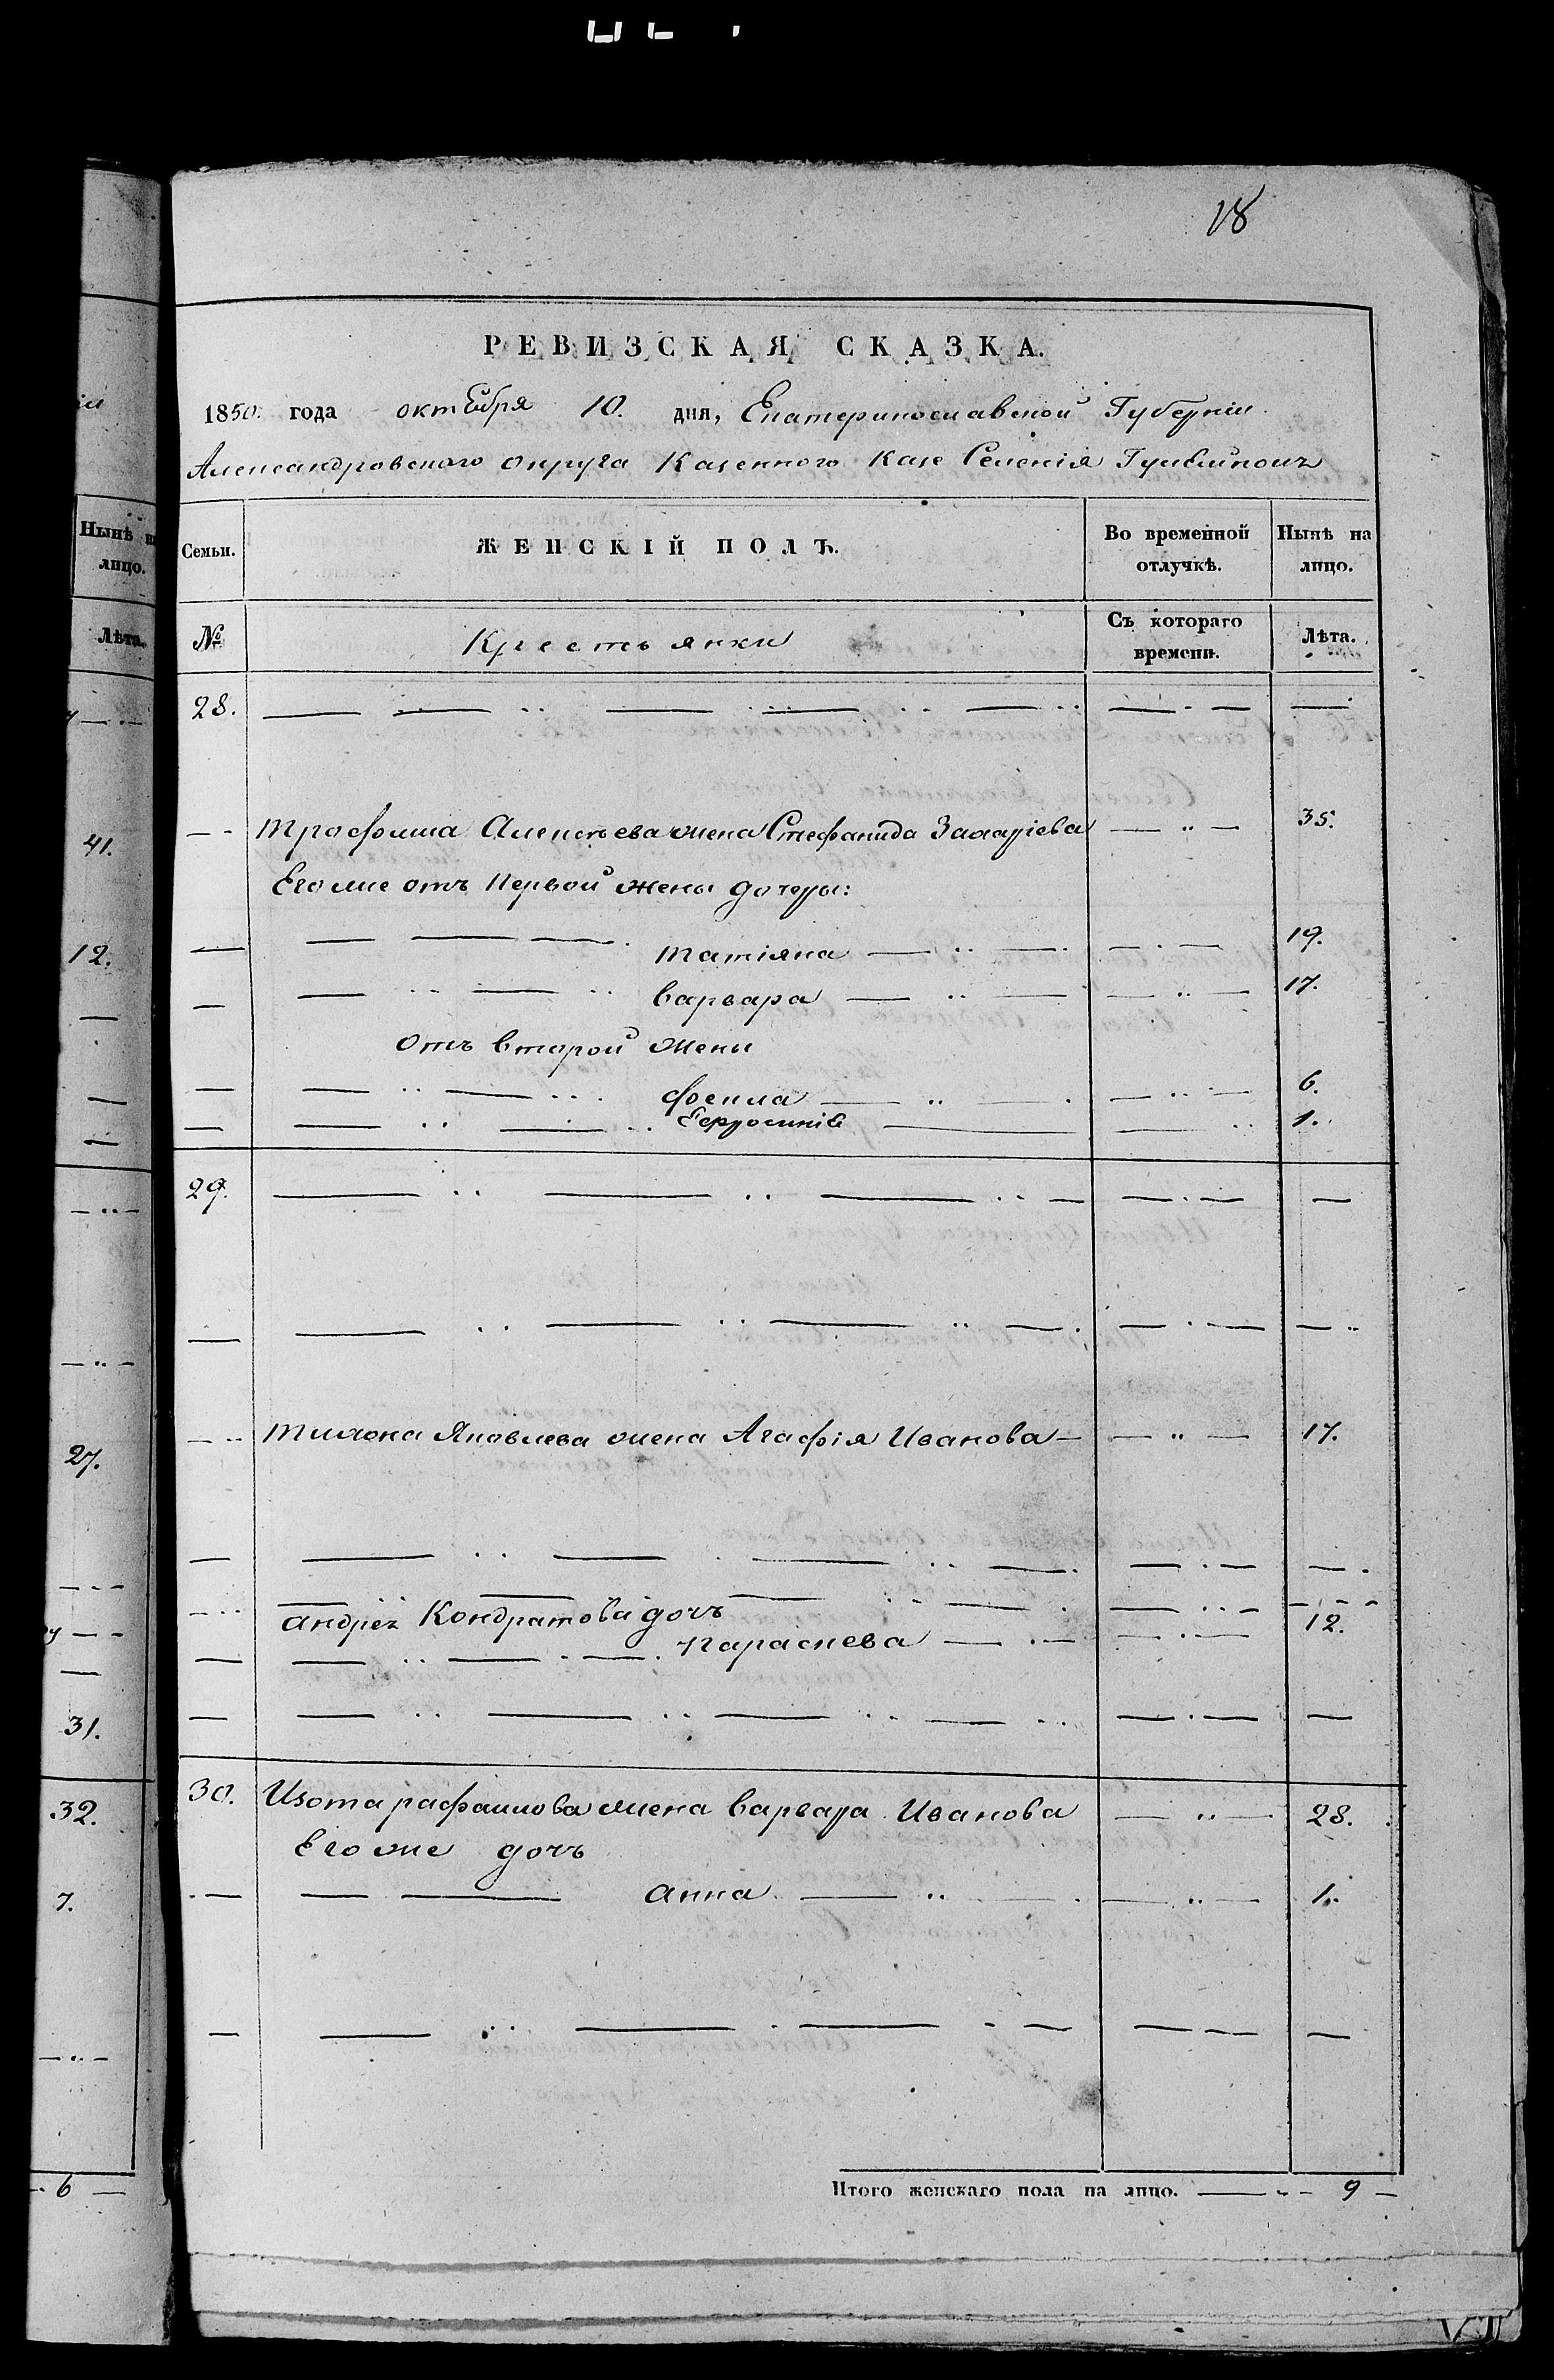 18
РЕВИЗСКАЯ СКАЗКА.
1850. года октября 10. дня, Екатеринославской Губерніи
Александровского округа Казенного Селенія
Семьи. ЖЕНСКІЙ ПОЛЪ. Во временной отлучкѣ. Нынѣ на лицо.
№ Крестьянки Съ котораго времени. Лѣта.
28.
Трофима Алексѣева жена Стефанида Захаріева 35.
Его же отъ первой жены дочеры:
Татіяна 19.
Варвара 17.
отъ второй жены
Фекла 6.
Ефросинія 1.
29.
Тихона Яковлева жена Агафія Иванова 17.
Андрея Кондратова дочь
Параскева 12.
30. Изота Рафаилова жена Варвара Иванова 28.
Его же дочь
Анна 1.
Итого женскаго пола на лицо. 9
Нынѣ на
лицо.
Лѣта.
41.
12.
27.
31.
32.
7.
6